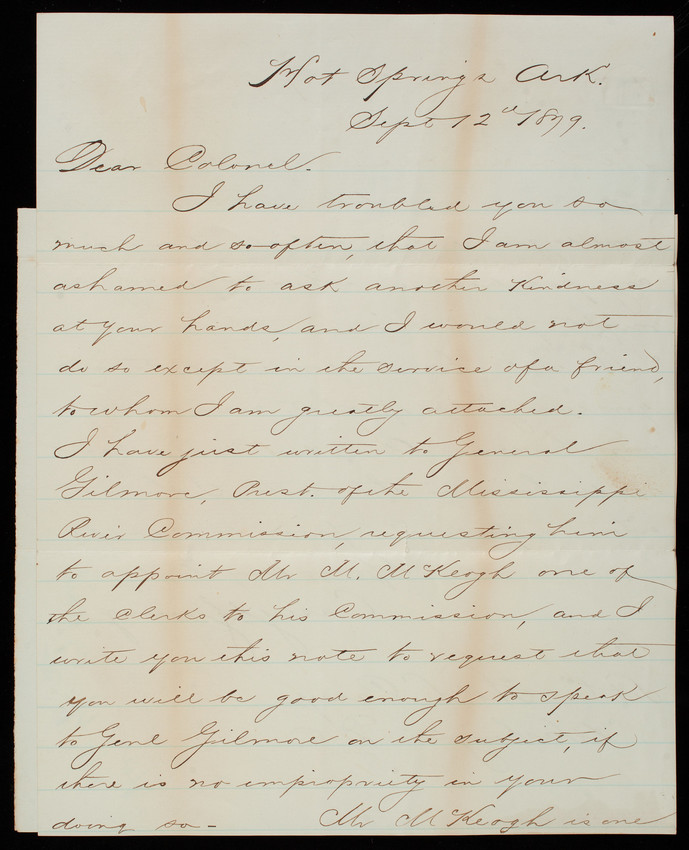 Hot Springs Ark.
Sept 12th 1879.
Dear Colonel.
I have troubled you so
much and so often, that I am almost
ashamed to ask another kindness
at your hands, and I would not
do so except in the service of a friend,
to whom I am greatly attached.
I have just written to General
Gilmore, Prest. of the Mississippi
River Commission, requesting him
to appoint Mr M. McKeogh one of
the clerks to his Commission, and I
write you this note to request that
you will be good enough to speak
to Genl Gilmore on the subject, if
there is no impropriety in your
doing so - Mr McKeogh is one